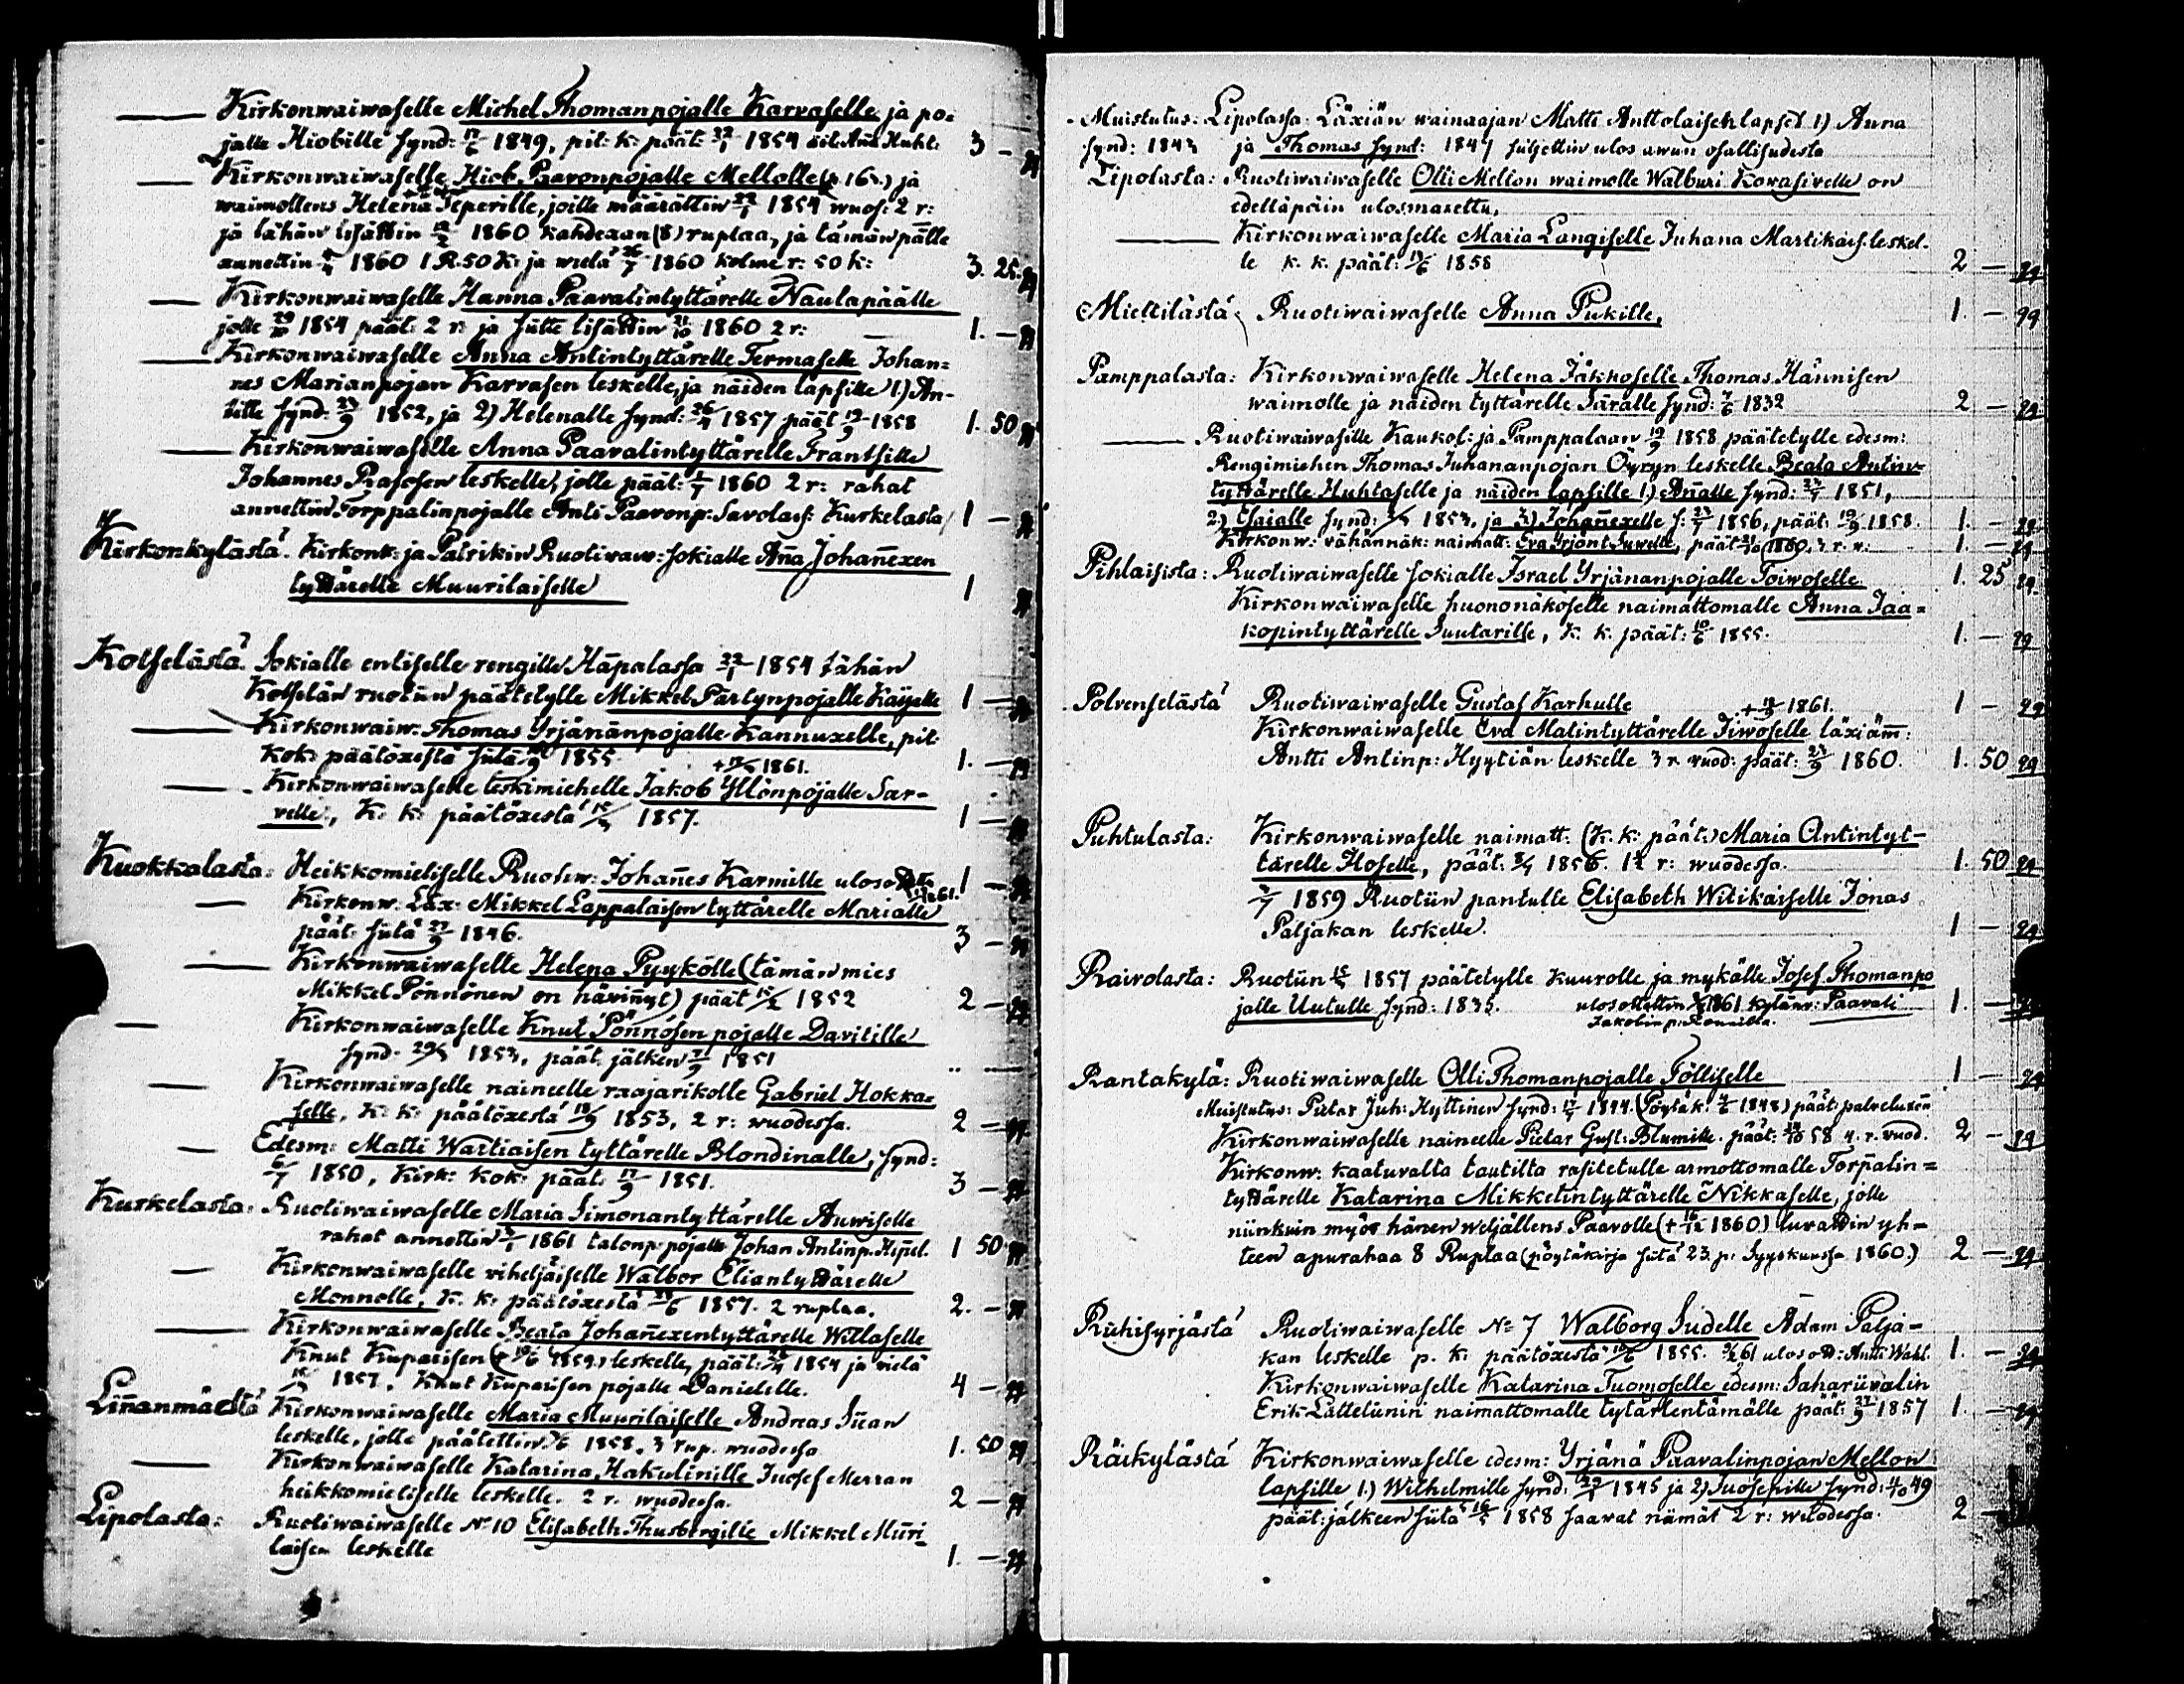 — Kirkonwaiwaselle Michel Thomanpojalle Karvaselle ja po-
jalle Hiobille synd: 17/6 1849, pit: k: päät: 22/1 1854 3 —
— Kirkonwaiwaselle Hiob Paavonpojalle Mellolle (p. 165.) ja
waimollens Helena Teperille, joille määrättiin 22/1 1854 wuos: 2 r:
ja tähän lisättiin 12/2 1860 kahdexan (8) ruplaa, ja tämän pälle
annettiin 1860 1 R. 50 K: ja wielä 26/7 1860 kolme r: 50 k: 3. 25.
— Kirkonwaiwaselle Hanna Paavalintyttärelle Naulapäälle
jolle 29/10 1854 päät: 2 r: ja siitte lisättiin 21/10 1860 2 r: 1. —
— Kirkonwaiwaselle Anna Antintyttärelle Termaselle Johan=
nes Marianpojan Karvasen leskelle, ja näiden lapsille 1.) An-
tille synd: 23/9 1852, ja 2) Helenalle synd: 26/4 1857 päät 19/9 1858 1. 50
— Kirkonwaiwaselle Anna Paavalintyttärelle Frantsille
Johannes Rasosen leskelle, jolle päät: 1/7 1860 2 r: rahat
annettiin Torppalinpojalle Anti Paavonp: Savolais: Kurkelasta 1 —
Kirkonkylästä. Kirkonk: ja Patrikin Ruotiwaiw: sokialle Ana Johanexen
tyttärelle Muurilaiselle 1
Kotselästä. Sokialle entiselle rengille Häpalassa 22/1 1854 tähän
Kotselän ruotiin päätetylle Mikkel Pärtynpojalle Käyelle 1 —
— Kirkonwaiw: Thomas Yrjänänpojalle Kannuxelle, pit:
kok: päätöxestä siitä 1855. 1. —
+ 1861.
— Kirkonwaiwaselle leskimiehelle Jakob Yllönpojalle Sar-
velle, K: k: päätöxestä 15/3 1857. 1 —
Kuokkalasta: Heikkomieliselle Ruotiw: Johanes Karmille 1 —
— Kirkonw: Läx: Mikkel Lappalaisen tyttärelle Marialle
päät: siitä 27/9 1846. 3 —
— Kirkonwaiwaselle Helena Pyykölle (tämän mies
Mikkel Pönnönen on hävinnyt) päät 15/2 1852 2 —
— Kirkonwaiwaselle Knut Pönnösen pojalle Davitille
synd: 29/3 1853, päät: jälken 7/9 1851
— Kirkonwaiwaselle naineelle raajarikolle Gabriel Hokka=
selle, K: k: päätöxestä 18/9 1853, 2 r: wuodessa. 2 —
— Edesm: Matti Wartiaisen tyttärelle Blondinalle, synd:
6/7 1850, Kirk: kok: päät: 17/9 1851. 3 —
Kurkelasta: Ruotiwaiwaselle Maria Simonantyttärelle Auwiselle
rahat annettiin 1861 talonp: pojalle Johan Antinp. 1 50
— Kirkonwaiwaselle viheljäiselle Walbor Eliantyttärelle
Monnolle, K. k: päätöxestä 1857. 2 ruplaa. 2. —
— Kirkonwaiwaselle Beata Johanexentyttärelle Willaselle
Knut Kuparisen leskelle, päät: 1854 ja vielä
1857. Knut Kuparisen pojalle Danielille. 4 —
Linanmäestä Kirkonwaiwaselle Maria Muurilaiselle Andreas Siran
leskelle, jolle päätettiin 1858, 3 rup. wuodessa 1. 50
— Kirkonwaiwaselle Katarina Hakulinille Juosef Merran
heikkomieliselle leskelle. 2 r. wuodessa. 2 —
Lipolasta: Ruotiwaiwaselle No 10 Elisabeth Thusbergille Mikkel Muri-
laisen leskelle 1. —
Muistutus: Lipolassa: Läxiän wainaajan Matti Anttolaisen lapset 1) Anna
synd: 1843 ja Thomas synd: 1847 siljettiin ulos awun osallisudesta
Lipolasta: Ruotiwaiwaselle Olli Mellon waimolle Walburi Kovasivelle on
edeltäpäin ulosmaxettu.
— Kirkonwaiwaselle Maria Langiselle Juhana Martikais. leskel-
le k. k. päät: 13/6 1858 2 —
Miettilästä Ruotiwaiwaselle Anna Pukille, 1. —
Pamppalasta: Kirkonwaiwaselle Helena Jäkkoselle Thomas Hännisen
waimolle ja näiden tyttärelle Saralle synd: 7/6 1832 2 —
— Ruotiwaiwasille Kaukol: ja Pamppalaan 19/9 1858 päätetylle edesm:
Rengimiehen Thomas Juhananpojan Öyryn leskelle Beata Antin-
tyttärelle Huhtaselle ja näiden lapsille 1.) Añalle synd: 1851,
2) Esaialle synd: 1853, ja 3) Johañexelle s: 1856, päät: 19/9 1858. 1. —
Kirkonw: vähännäk: naimatt: Eva Yrjönt Suvelle, päät 21/10 1860, 3 r. v: 1. —
Pihlaisista: Ruotiwaiwaselle sokialle Israel Yrjänanpojalle Toiwoselle 1. 25
Kirkonwaiwaselle huononäköselle naimattomalle Anna Jaa=
kopintyttärelle Suutarille, K. k. päät: 10/6 1855. 1. —
Polvenselästä Ruotiwaiwaselle Gustaf Karhulle + 1861. 1 —
Kirkonwaiwaselle Eva Matintyttärelle Tiwoselle läxiäm:
Antti Antinp: Hyytiän leskelle 3 r. vuod: päät: 23/9 1860. 1. 50
Puhtulasta: Kirkonwaiwaselle naimatt: (K. k: päät:) Maria Antintyt-
tärelle Hoselle, päät: 1856. 1½ r: wuodessa. 1. 50
1859 Ruotiin pantulle Elisabeth Witikaiselle Jonas
Paljakan leskelle. 1 —
Raivolasta: Ruotiin 1857 päätetylle kuurolle ja mykälle Josef Thomanpo
jalle Uutulle synd: 1835. ulosotettiin 1861 kylänv: Paavali 1. —
Jakobinp:
Rantakylä: Ruotiwaiwaselle Olli Thomanpojalle Tölliselle 1 —
Muistutus: Pietar Juh: Hyttinen synd: 17/7 1844. (Pöytäk. 4/6 1848) päät: palveluxen
Kirkonwaiwaselle naineelle Pietar Gust: Blumille. päät: 58 4. r. vuod. 2 —
Kirkonw: kaatuvalta tautilta rasitetulle armottomalle Torpalin=
tyttärelle Katarina Mikkelintyttärelle Nikkaselle, jolle
niinkuin myös hänen weljällens Paavolle (+ 16/12 1860) luvattiin yh=
teen apurahaa 8 Ruplaa (pöytäkirja siitä 23. p: Syyskuussa 1860.) 2 —
Riihisyrjästä Ruotiwaiwaselle No 7 Walborg Sudelle Adam Palja-
kan leskelle p. k: päätöxestä 10/6 1855. 61 ulosott: Antti Wahl. 1. —
Kirkonwaiwaselle Katarina Tuomoselle edesm:
Erik naimattomalle tytärlentämälle päät: 27/9 1857 1. —
Räikylästä Kirkonwaiwaselle edesm: Yrjänä Paavalinpojan Mellon
lapsille 1.) Wilhelmille synd: 1845 ja 2) Juosepille synd: 4/10 49
päät: jälkeen siitä 16/5 1858 saavat nämät 2 r: wuodessa. 2 —